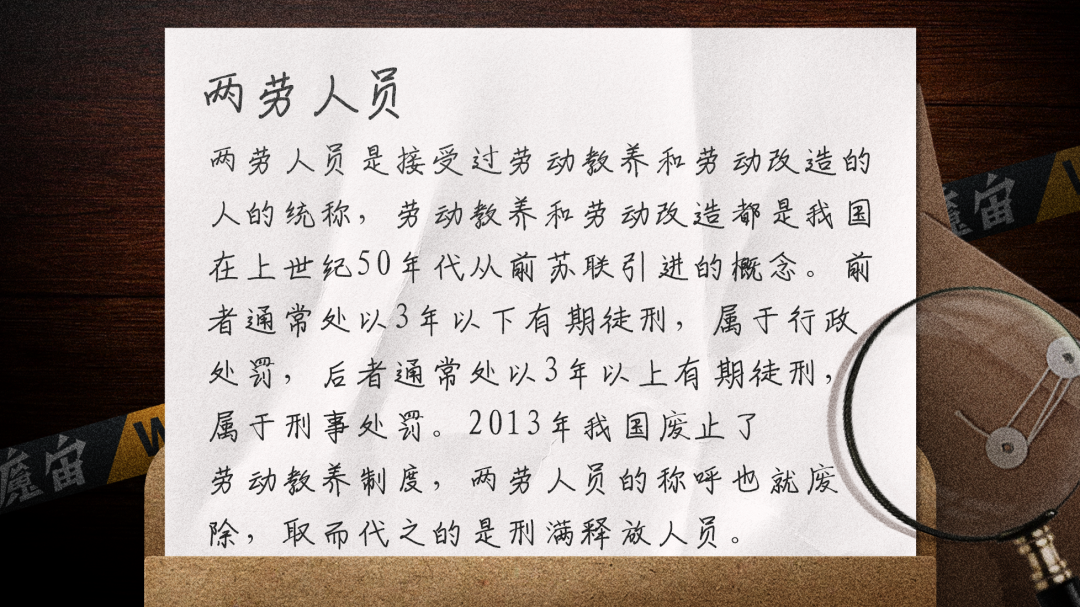 两劳人员
两劳人员是接受过劳动教养和劳动改造的
人的统称，劳动教养和劳动改造都是我国
在上世纪50年代从前苏联引进的概念。前
者通常处以3年以下有期徒刑，属于行政
处罚，后者通常处以3年以上有期徒刑，
属于刑事处罚。2013年我国废止了
劳动教养制度，两劳人员的称呼也就废
除，取而代之的是刑满释放人员。
魔宙
魔宙